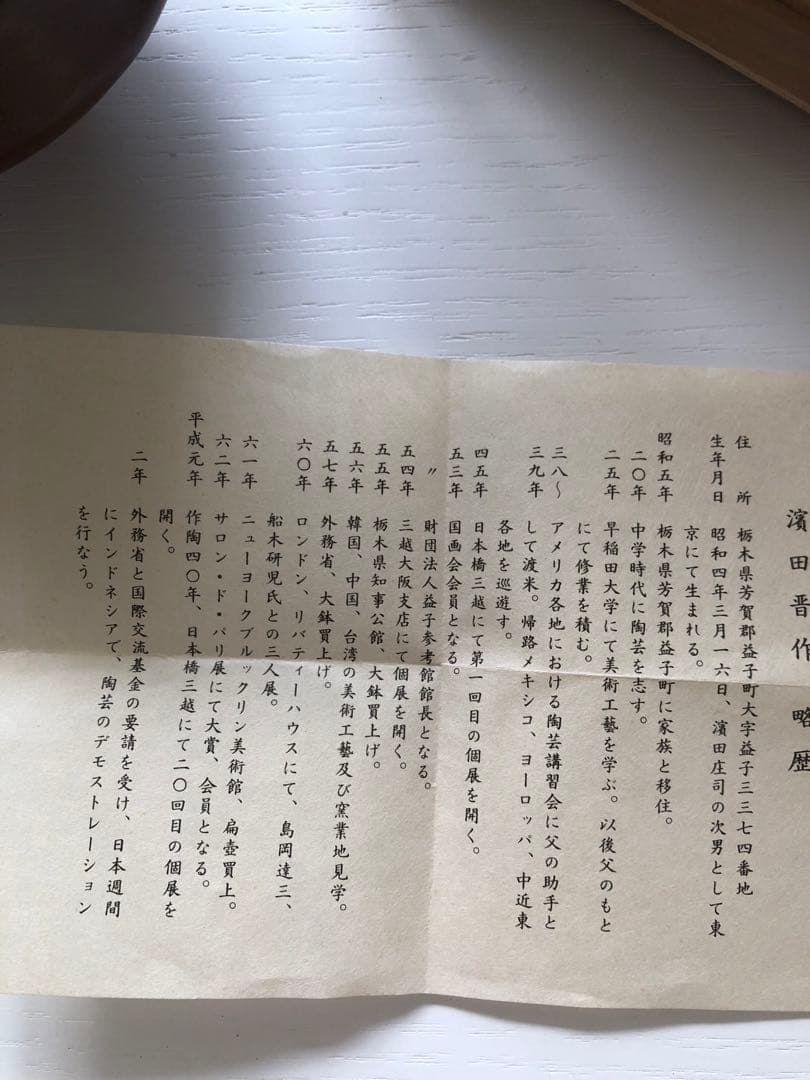 濱田晋作 略歴
住所 栃木県芳賀郡益子町大字益子三三七四番地
生年月日 昭和四年三月一六日、濱田庄司の次男として東
京にて生まれる。
昭和五年 栃木県芳賀郡益子町に家族と移住。
二〇年 中学時代に陶芸を志す。
二五年 早稲田大学にて美術工藝を学ぶ。以後父のもと
にて修業を積む。
三八〜 アメリカ各地における陶芸講習会に父の助手と
三九年 して渡米。帰路メキシコ、ヨーロッパ、中近東
各地を巡遊す。
四五年 日本橋三越にて第一回目の個展を開く。
五三年 国画会会員となる。
〃 財団法人益子参考館館長となる。
五四年 三越大阪支店にて個展を開く。
五五年 栃木県知事公館、大鉢買上げ。
五六年 韓国、中国、台湾の美術工藝及び窯業地見学。
五七年 外務省、大鉢買上げ。
六〇年 ロンドン、リバティーハウスにて、島岡達三、
船木研児氏との三人展。
六一年 ニューヨークブルックリン美術館、扁壺買上。
六二年 サロン・ド・パリ展にて大賞、会員となる。
平成元年 作陶四〇年、日本橋三越にて二〇回目の個展を
開く。
二年 外務省と国際交流基金の要請を受け、日本週間
にインドネシアで、陶芸のデモストレーション
を行なう。